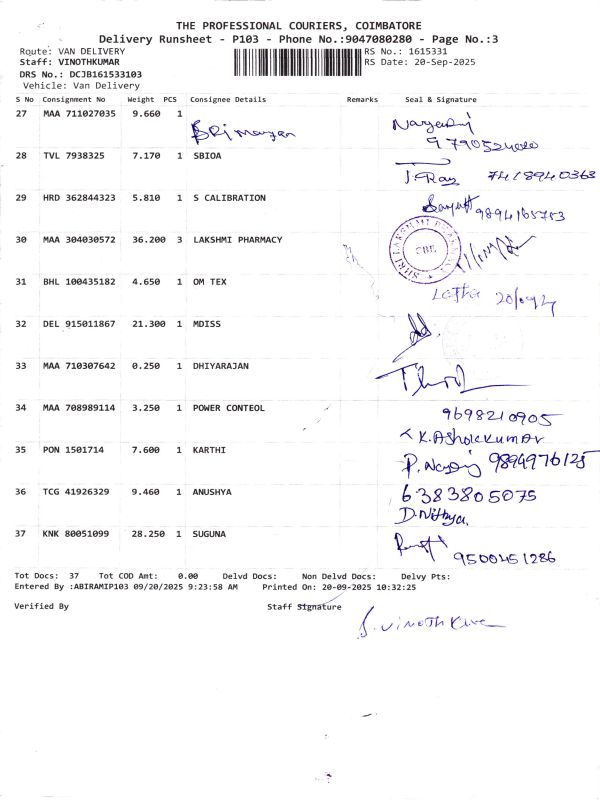 THE PROFESSIONAL COURIERS, COIMBATORE
Delivery Runsheet - P103 - Phone No.:9047080280 - Page No.:3
Route: VAN DELIVERY RS No.: 1615331
Staff: VINOTHKUMAR RS Date: 20-Sep-2025
DRS No.: DCJB161533103
Vehicle: Van Delivery
S No Consignment No Weight PCS Consignee Details Remarks Seal & Signature
27 MAA 711027035 9.660 1
28 TVL 7938325 7.170 1 SBIOA
J. Raj 7418940363
29 HRD 362844323 5.810 1 S CALIBRATION
9894165753
30 MAA 304030572 36.200 3 LAKSHMI PHARMACY
CBE
31 BHL 100435182 4.650 1 OM TEX
Latha
32 DEL 915011867 21.300 1 MDISS
33 MAA 710307642 0.250 1 DHIYARAJAN
34 MAA 708989114 3.250 1 POWER CONTEOL
9698210905
K.Ashokkumar
35 PON 1501714 7.600 1 KARTHI
9894976125
36 TCG 41926329 9.460 1 ANUSHYA
6383805075
D.Nithya.
37 KNK 80051099 28.250 1 SUGUNA
9500451286
Tot Docs: 37 Tot COD Amt: 0.00 Delvd Docs: Non Delvd Docs: Delvy Pts:
Entered By :ABIRAMIP103 09/20/2025 9:23:58 AM Printed On: 20-09-2025 10:32:25
Verified By Staff Signature